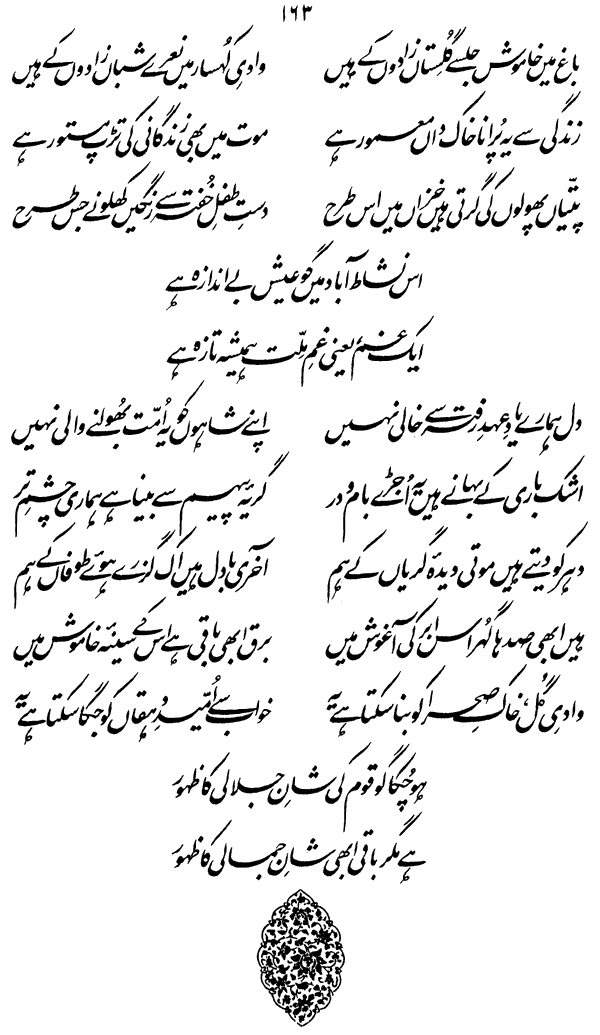 ۱۶۳
باغ میں خاموش جلسے گُلِستاں زادوں کے ہیں    وادیِ کُہسار میں نعرے شباں زادوں کے ہیں
زندگی سے یہ پُرانا خاک داں معمور ہے    موت میں بھی زندگانی کی تڑپ مستور ہے
پتّیاں پھولوں کی گرتی ہیں خزاں میں اس طرح    دستِ طفلِ خُفتہ سے رنگیں کھلونے جس طرح
اس نشاط آباد میں گو عیش بے اندازہ ہے
ایک غم، یعنی غمِ ملّت ہمیشہ تازہ ہے
دل ہمارے یادِ عہدِ رفتہ سے خالی نہیں    اپنے شاہوں کو یہ اُمّت بھُولنے والی نہیں
اشک باری کے بہانے ہیں یہ اُجڑے بام و در    گریۂ پیہم سے بینا ہے ہماری چشمِ تر
دہر کو دیتے ہیں موتی دیدۂ گریاں کے ہم    آخری بادل ہیں اک گزرے ہوئے طوفاں کے ہم
ہیں ابھی صدہا گُہر اس ابر کی آغوش میں    برق ابھی باقی ہے اس کے سینۂ خاموش میں
وادیِ گُل، خاکِ صحرا کو بنا سکتا ہے یہ    خواب سے اُمّیدِ دہقاں کو جگا سکتا ہے یہ
ہو چُکا گو قوم کی شانِ جلالی کا ظہور
ہے مگر باقی ابھی شانِ جمالی کا ظہور